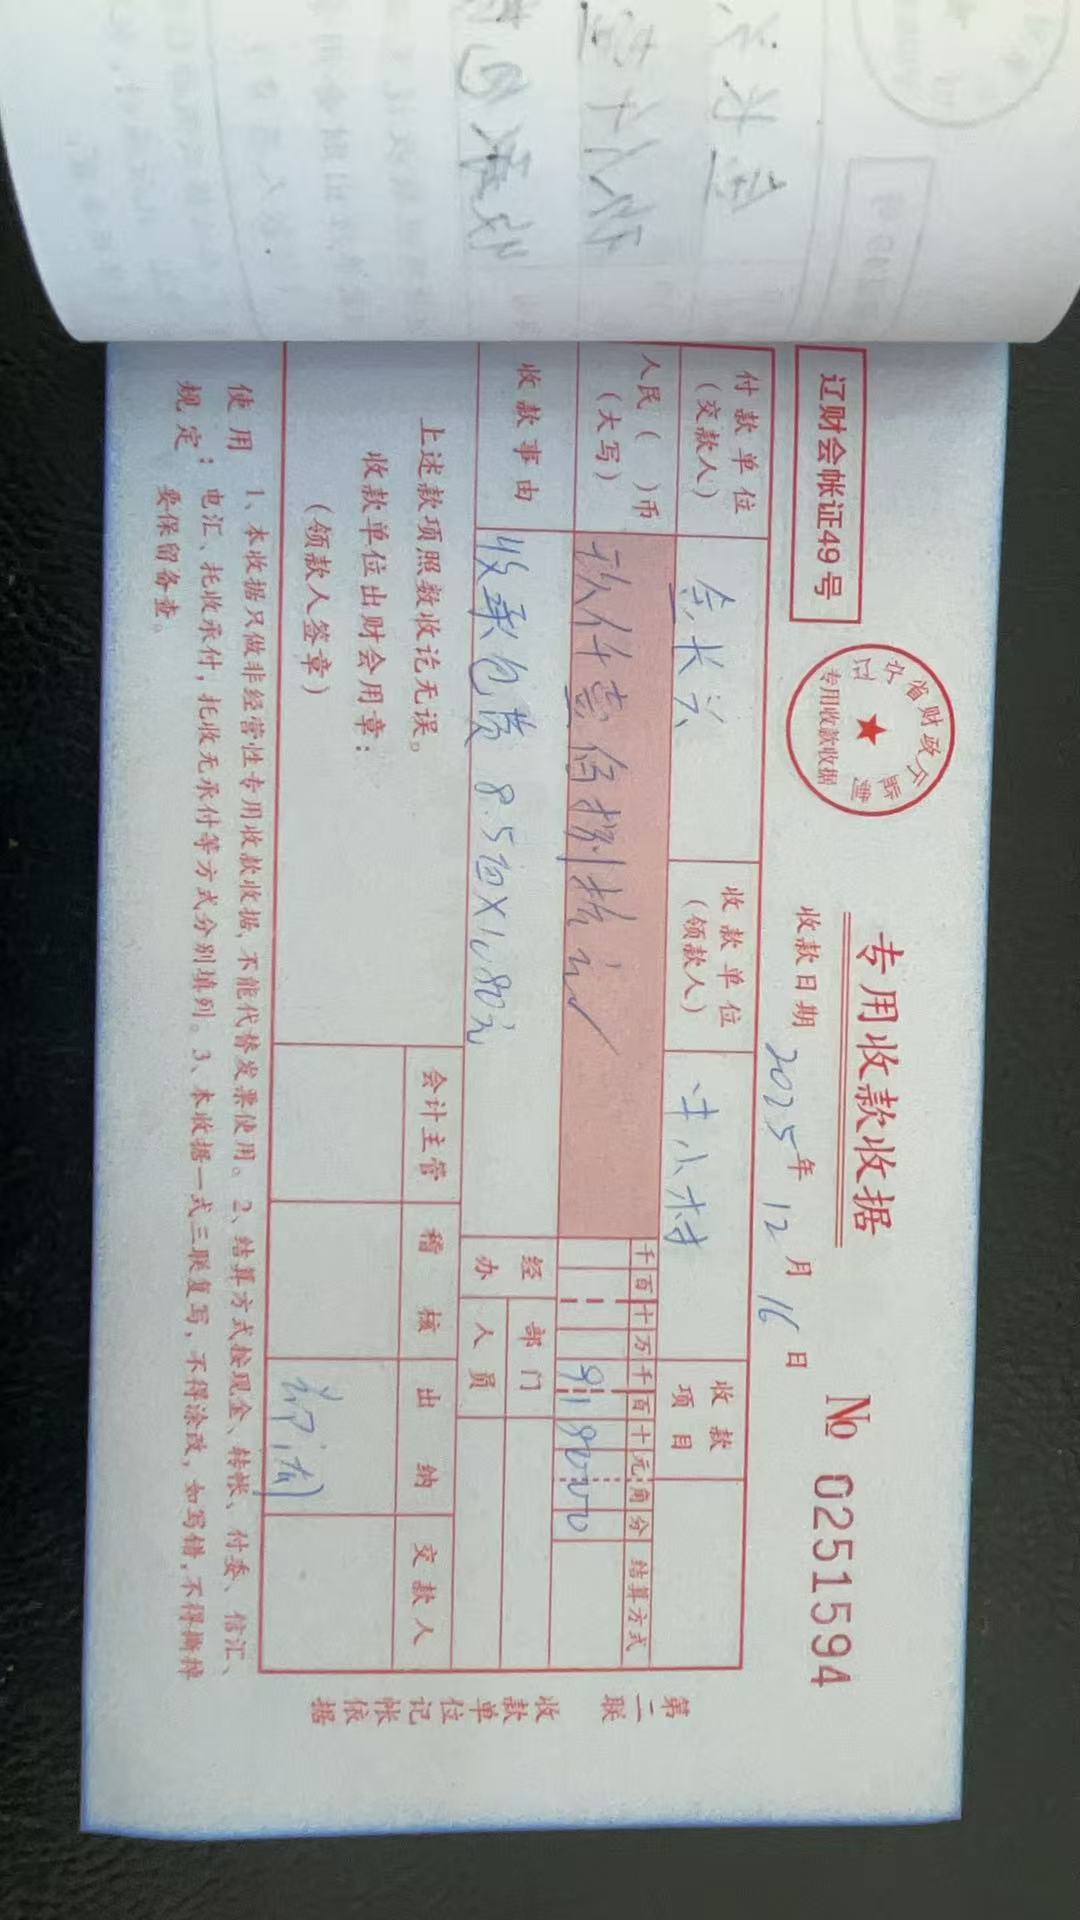 专用收款收据
辽财会帐证49号
专用收款收据
收款日期 2025年 12月 16日
№ 0251594
付款单位
(交款人)
收款单位
(领款人)
收款
项目
人民( )币
(大写)
玖仟壹佰捌拾元
千百十万千百十元角分
结算方式
918000
收款事由
收承包费 8.5亩×1080元
经办
部门
人员
上述款项照数收讫无误。
收款单位出财会用章:
(领款人签章)
会计主管
稽核
出纳
交款人
使用规定:
1、本收据只做非经营性专用收款收据,不能代替发票使用。2、结算方式按现金、转帐、付委、信汇、
电汇、托收承付,托收无承付等方式分别填列。3、本收据一式三联复写,不得涂改,如写错,不得撕掉
要保留备查。
第二联
收款单位记帐依据